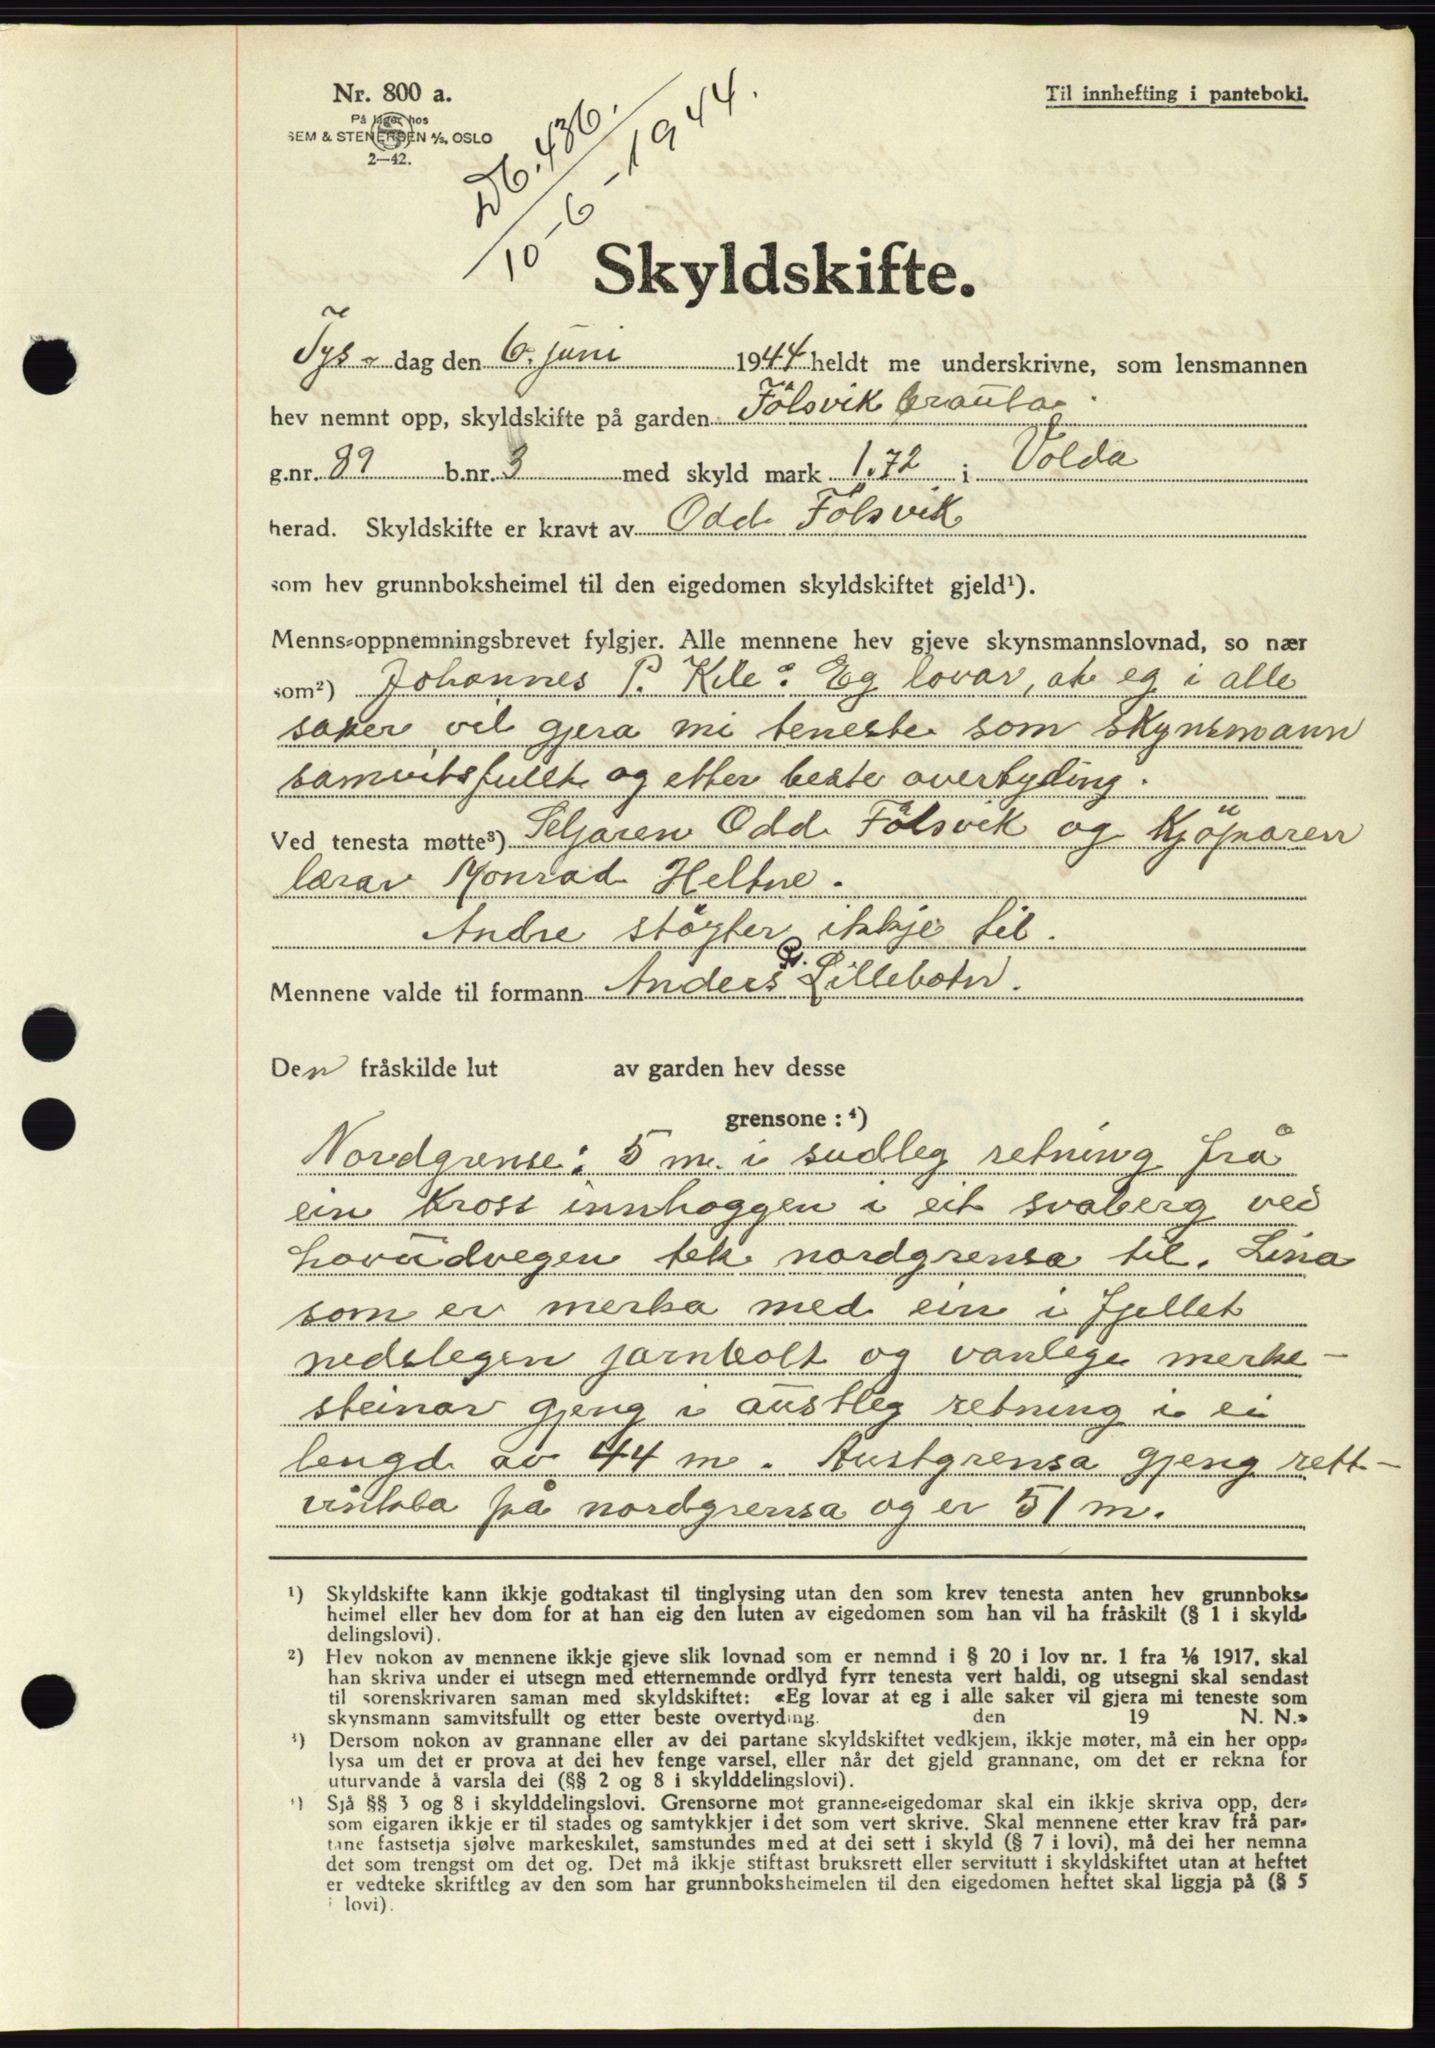 Nr. 800 a.
På lager hos
SEM & STENERSEN A/S, OSLO
2—42.
Til innhefting i panteboki.
Db. 436.
10-6-1944.
Skyldskifte.
Tys- dag den 6. juni 1944 heldt me underskrivne, som lensmannen
hev nemnt opp, skyldskifte på garden Fölsvik
g.nr. 89 b.nr. 3 med skyld mark 1.72 i Volda
herad. Skyldskifte er kravt av Odd Fölsvik
som hev grunnboksheimel til den eigedomen skyldskiftet gjeld¹).
Menns-oppnemningsbrevet fylgjer. Alle mennene hev gjeve skynsmannslovnad, so nær
som²) Johannes P. Kile: Eg lovar, at eg i alle
saker vil gjera mi teneste som skynsmann
samvitsfullt og etter beste overtyding.
Ved tenesta møtte³) Seljaren Odd Fölsvik og Kjöparen
lærar Monrad Heltne.
Andre stöyter ikkje til.
Mennene valde til formann Anders P. Lillebotn.
Den fråskilde lut av garden hev desse
grensone: ⁴)
Nordgrense: 5 m. i sudleg retning frå
ein kross innhoggen i eit svaberg ved
hovudvegen tek nordgrensa til. Lina
som er merka med ein i fjellet
nedslegen jarnbolt og vanlege merke-
steinar gjeng i austleg retning i ei
lengd av 44 m. Austgrensa gjeng rett-
vinkla på nordgrensa og er 51 m.
¹) Skyldskifte kann ikkje godtakast til tinglysing utan den som krev tenesta anten hev grunnboks-
heimel eller hev dom for at han eig den luten av eigedomen som han vil ha fråskilt (§ 1 i skyld-
delingslovi).
²) Hev nokon av mennene ikkje gjeve slik lovnad som er nemnd i § 20 i lov nr. 1 fra 1/6 1917, skal
han skriva under ei utsegn med etternemnde ordlyd fyrr tenesta vert haldi, og utsegni skal sendast
til sorenskrivaren saman med skyldskiftet: «Eg lovar at eg i alle saker vil gjera mi teneste som
skynsmann samvitsfullt og etter beste overtyding. den 19 N. N.»
³) Dersom nokon av grannane eller av dei partane skyldskiftet vedkjem, ikkje møter, må ein her opp-
lysa um det er prova at dei hev fenge varsel, eller når det gjeld grannane, om det er rekna for
uturvande å varsla dei (§§ 2 og 8 i skylddelingslovi).
⁴) Sjå §§ 3 og 8 i skylddelingslovi. Grensorne mot granne-eigedomar skal ein ikkje skriva opp, der-
som eigaren ikkje er til stades og samtykkjer i det som vert skrive. Skal mennene etter krav frå par-
tane fastsetja sjølve markeskilet, samstundes med at dei sett i skyld (§ 7 i lovi), må dei her nemna
det som trengst om det og. Det må ikkje stiftast bruksrett eller servitutt i skyldskiftet utan at heftet
er vedteke skriftleg av den som har grunnboksheimelen til den eigedomen heftet skal liggja på (§ 5
i lovi).